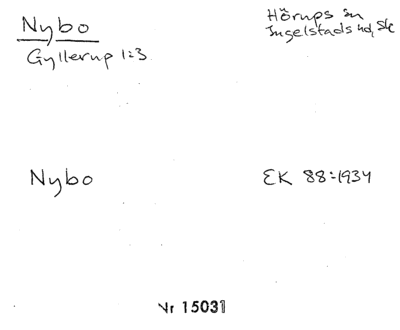 Nybo
Hörups sn
Ingelstads hd, Sk
Gyllerup 1:3
Nybo
EK 88:1934
Nr 15031